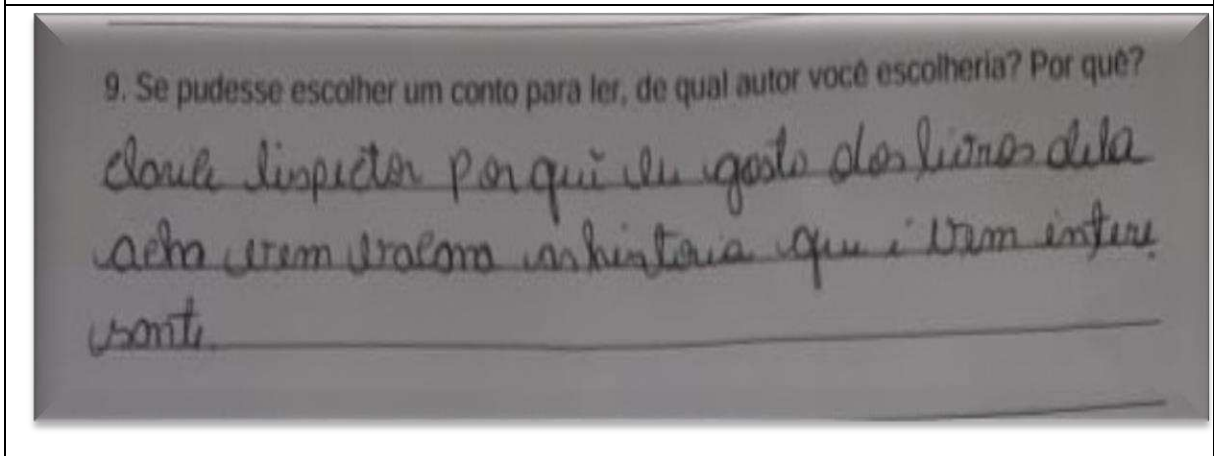 9. Se pudesse escolher um conto para ler, de qual autor você escolheria? Por quê?
lispector por que eu gosto dos livros dela
acho bem bacana as historia que é bem intere
sante.